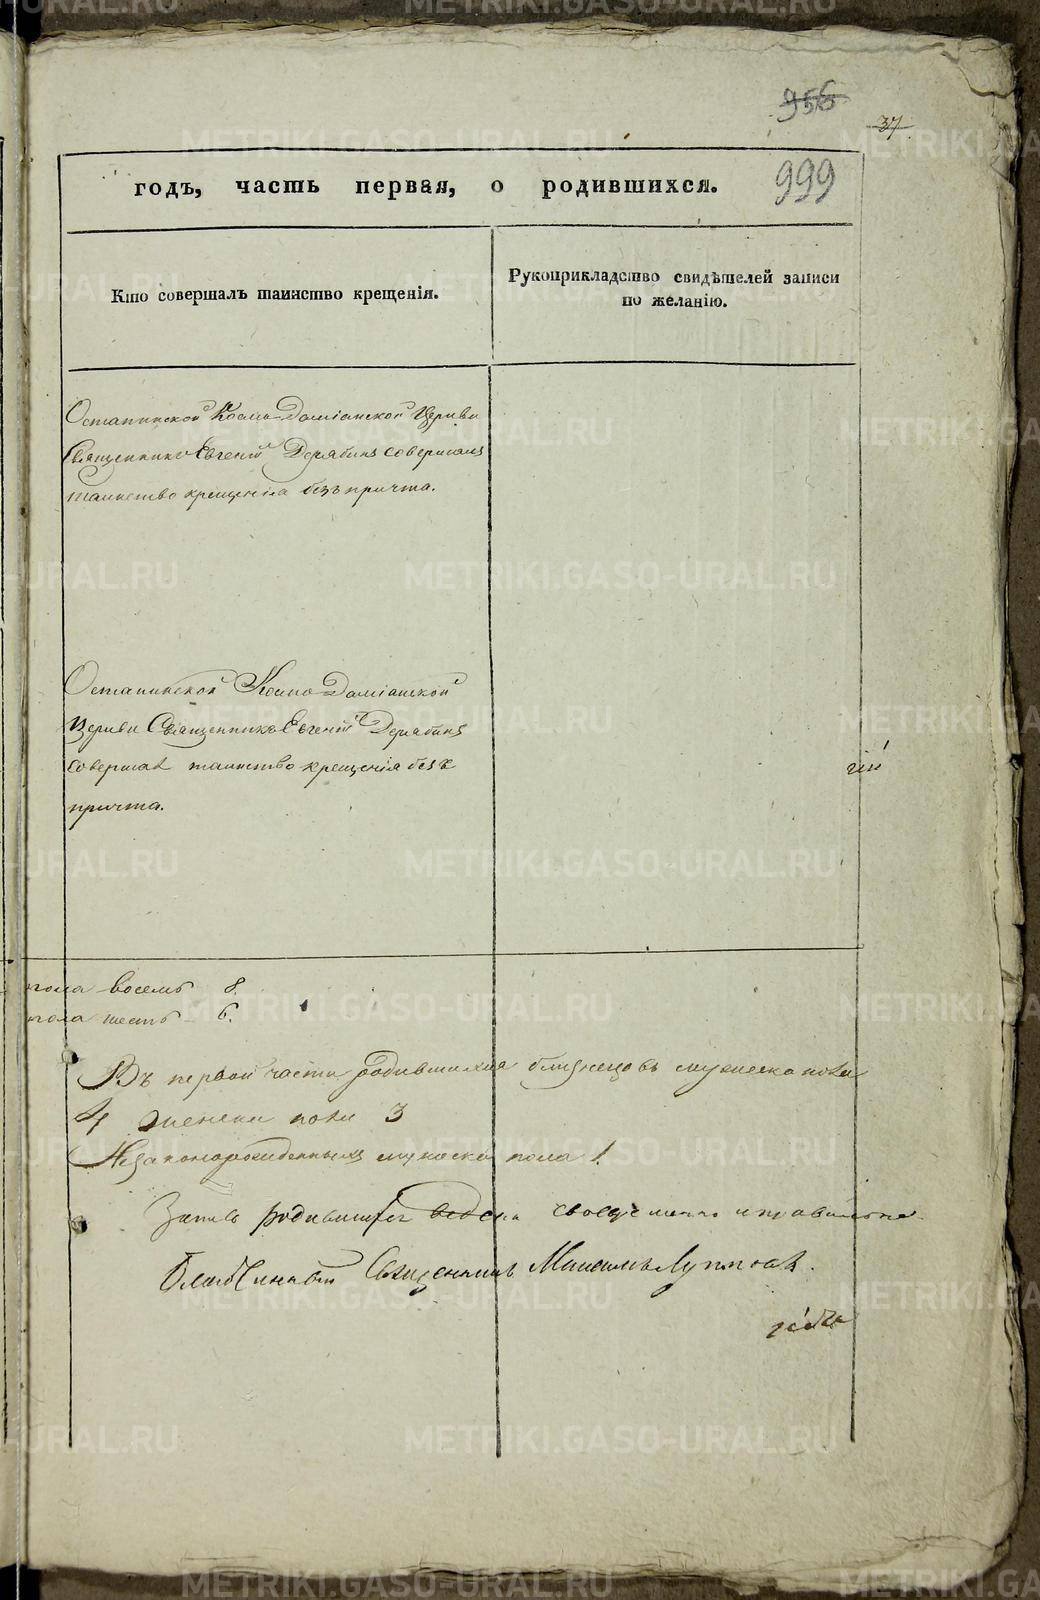 956
37
годъ, часть первая, о родившихся. 999
Кто совершалъ таинство крещенія.
Рукоприкладство свидѣтелей записи
по желанію.
Останинской Космо-Даміанской Церкви
Священникъ Евгеній Дерябинъ совершалъ
таинство крещенія безъ причта.
Останинской Космо-Даміанской
Церкви Священникъ Евгеній Дерябинъ
совершал таинство крещенія безъ
причта.
пола восемь 8.
пола шесть 6.
Въ первой части родившихся близнецовъ мужеска пола
4 женска пола 3
Незаконорожденныхъ мужеска пола 1.
своевременно и правильно
Благочинный Священникъ
METRIKI.GASO-URAL.RU